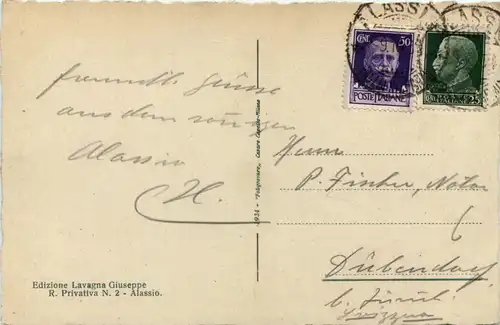 freundl. Grüsse
aus dem sonnigen
Alassio
H.
Edizione Lavagna Giuseppe
R. Privativa N. 2 - Alassio.
1934 - Fotogravure, Cesare Capello-Milano
ALASSI
CENT. 50
POSTE ITALIANE
25
Herrn
P. Fischer, Notar
Dübendorf
b. Zürich
Svizzera